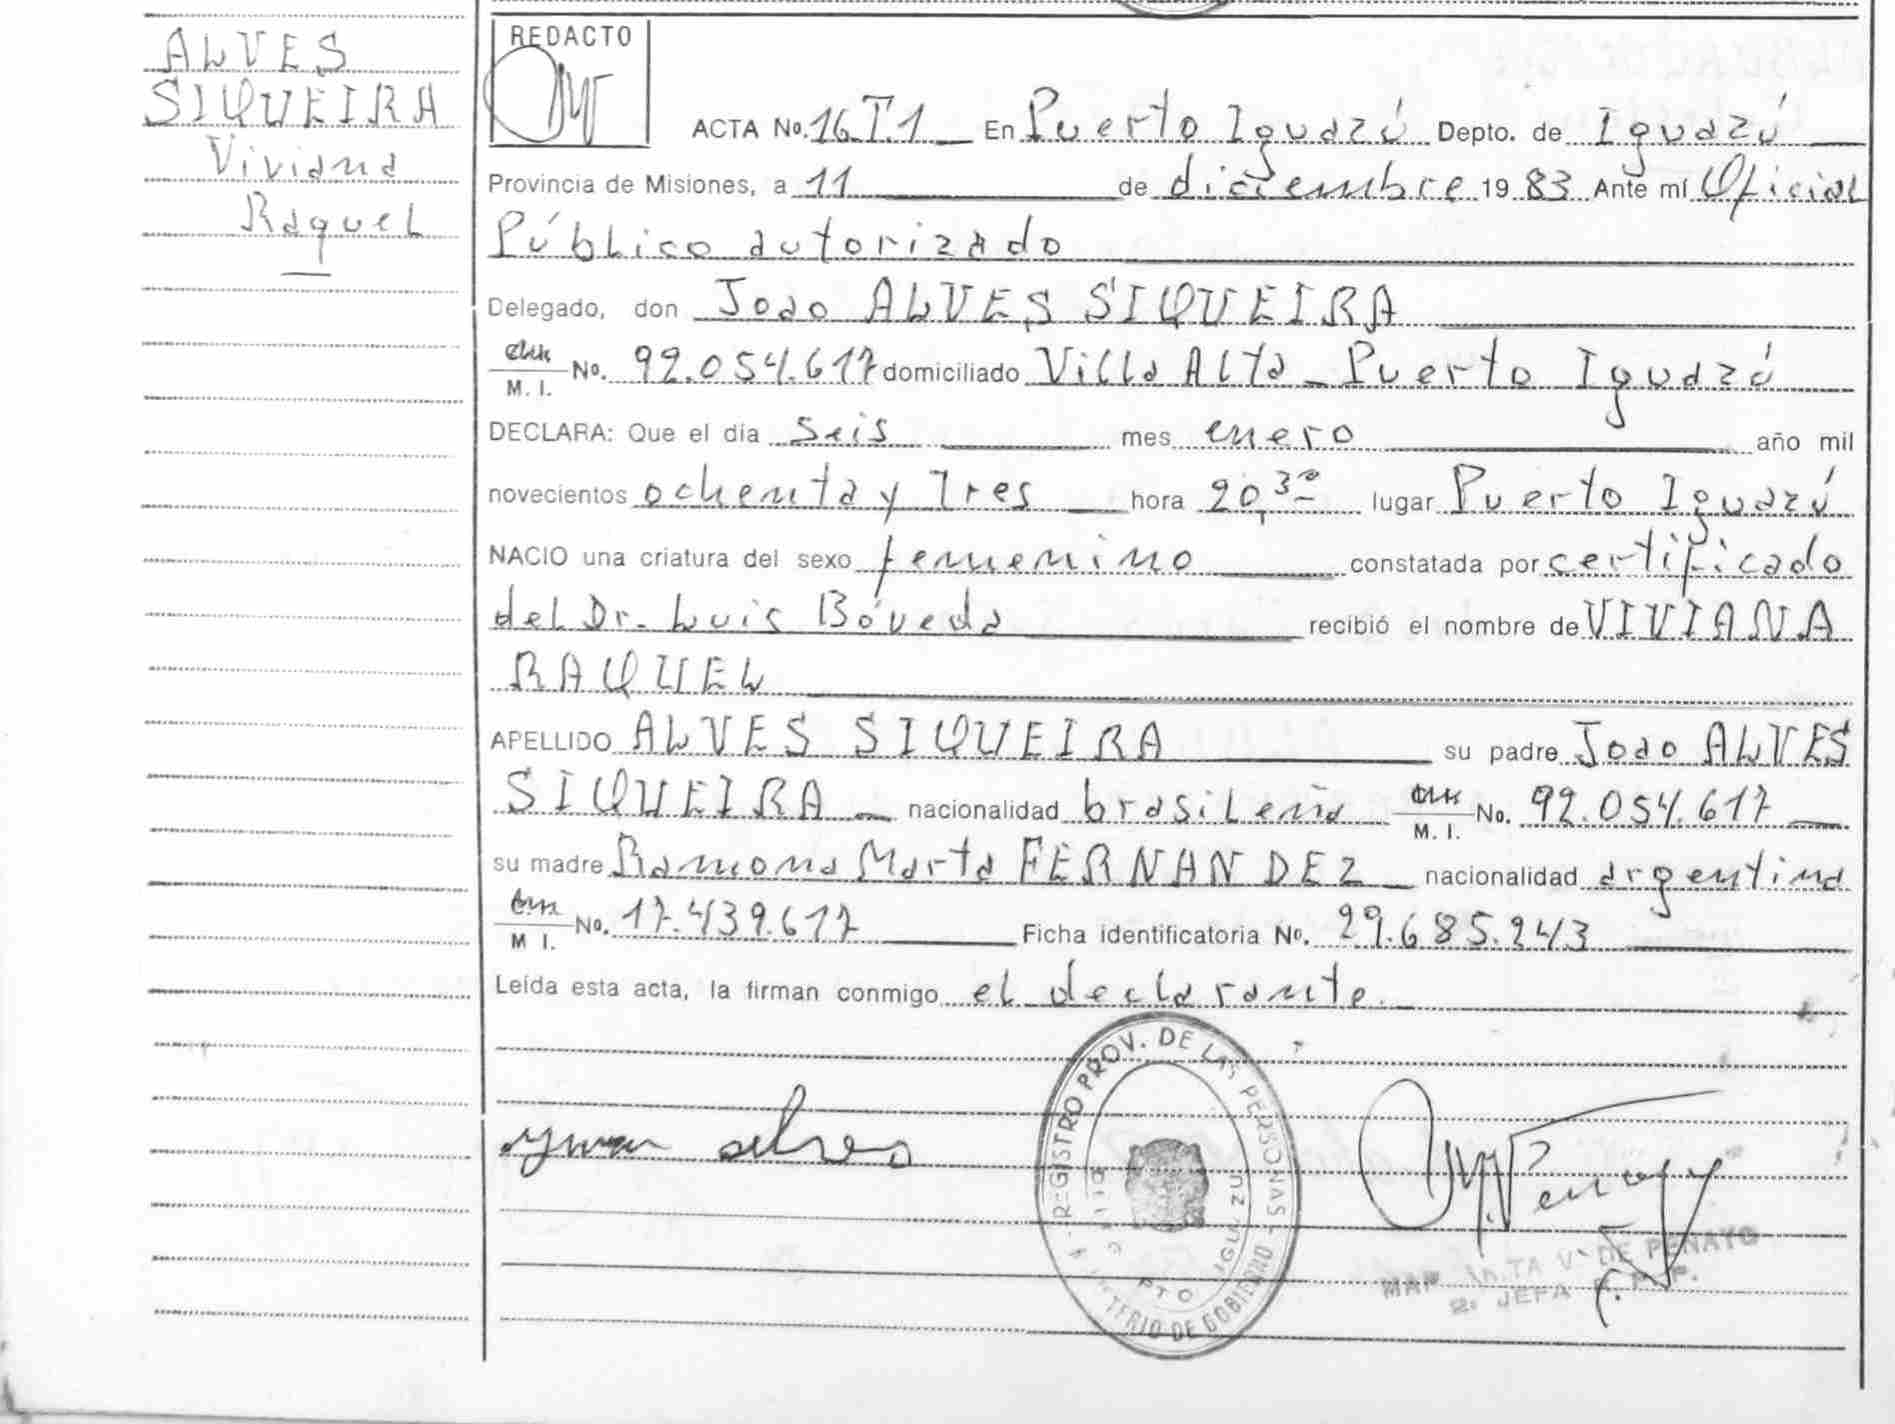 ALVES
SIQUEIRA
Viviana
Raquel
REDACTO
ACTA No. 16 T.1 En Puerto Iguazú Depto. de Iguazú
Provincia de Misiones, a 11 de diciembre 1983 Ante mí Oficial
Público autorizado
Delegado, don Joao ALVES SIQUEIRA
M. I. No. 92.054.617 domiciliado Villa Alta - Puerto Iguazú
DECLARA: Que el día seis mes enero año mil
novecientos ochenta y Tres hora 20,30 lugar Puerto Iguazú
NACIO una criatura del sexo femenino constatada por certificado
del Dr. Luis Bóveda recibió el nombre de VIVIANA
RAQUEL
APELLIDO ALVES SIQUEIRA su padre Joao ALVES
SIQUEIRA nacionalidad brasileña M. I. No. 92.054.617
su madre Ramona Marta FERNANDEZ nacionalidad argentina
M I. No. 17.439.617 Ficha identificatoria No. 29.685.243
Leída esta acta, la firman conmigo el declarante.
REGISTRO PROV. DE LAS PERSONAS
PTO
DE GOBIERNO
DE PENAYO
JEFA